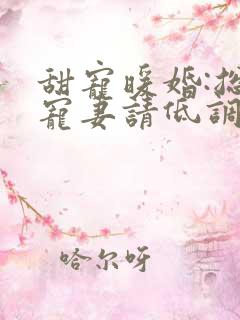 甜寵暖婚:總
寵妻請低調
哈尔呀